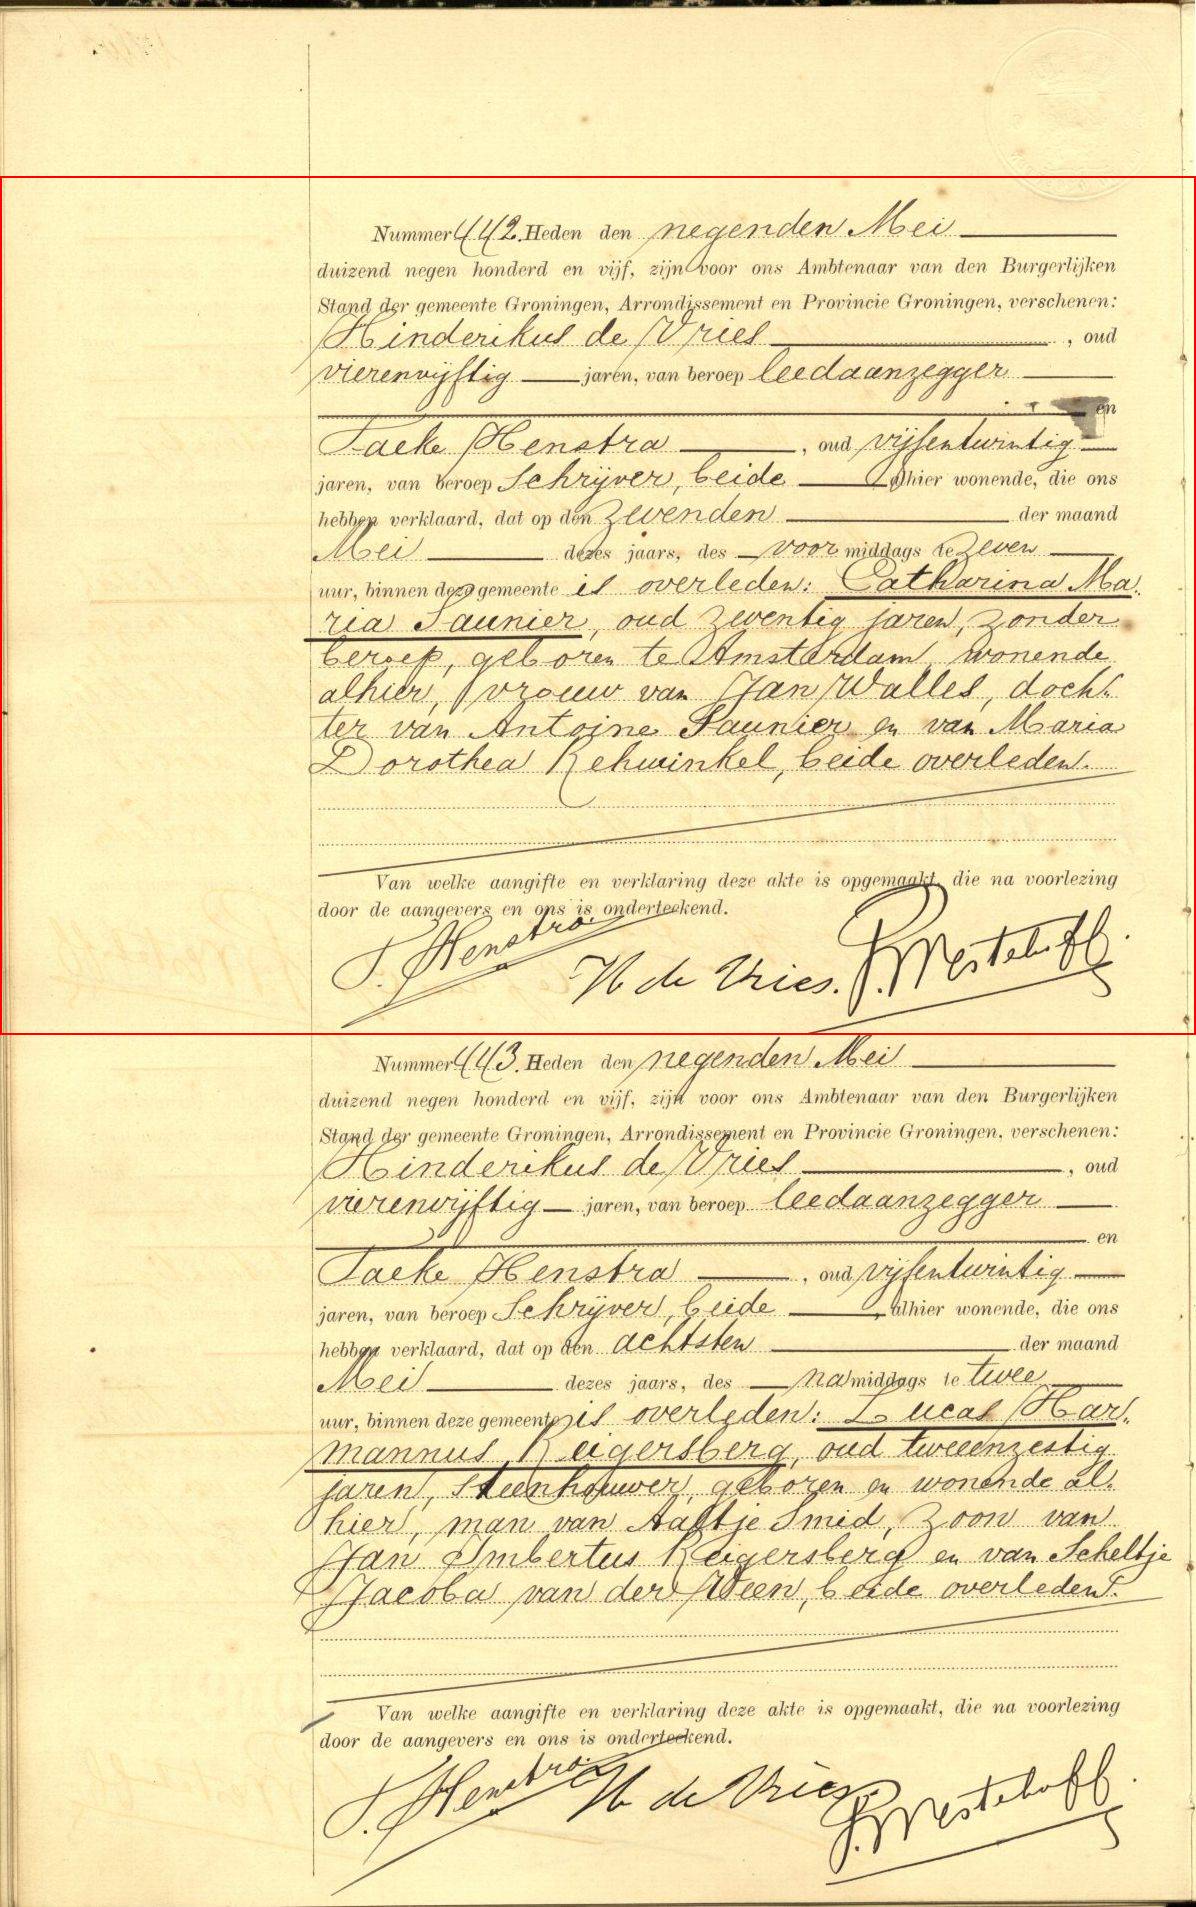 Nummer 442. Heden den negenden Mei
duizend negen honderd en vijf, zijn voor ons Ambtenaar van den Burgerlijken
Stand der gemeente Groningen, Arrondissement en Provincie Groningen, verschenen:
Hinderikus de Vries, oud
vierenvijftig jaren, van beroep leedaanzegger
en
Taeke Henstra, oud vijfentwintig
jaren, van beroep Schrijver, beide alhier wonende, die ons
hebben verklaard, dat op den zevenden der maand
Mei dezes jaars, des voormiddags te zeven
uur, binnen deze gemeente is overleden: Catharina Ma-
ria Saunier, oud zeventig jaren, zonder
beroep, geboren te Amsterdam, wonende
alhier, vrouw van Jan Walles, doch-
ter van Antoine Saunier en van Maria
Dorothea Rehwinkel, beide overleden.
Van welke aangifte en verklaring deze akte is opgemaakt, die na voorlezing
door de aangevers en ons is onderteekend.
T. Henstra. H de Vries. P. Westehoff.
Nummer 443. Heden den negenden Mei
duizend negen honderd en vijf, zijn voor ons Ambtenaar van den Burgerlijken
Stand der gemeente Groningen, Arrondissement en Provincie Groningen, verschenen:
Hinderikus de Vries, oud
vierenvijftig jaren, van beroep leedaanzegger
en
Taeke Henstra, oud vijfentwintig
jaren, van beroep Schrijver, beide alhier wonende, die ons
hebben verklaard, dat op den achtsten der maand
Mei dezes jaars, des namiddags te twee
uur, binnen deze gemeente is overleden: Lucas Har-
mannus Reigersberg, oud tweeenzestig
jaren, steenhouwer, geboren en wonende al-
hier, man van Aaltje Smid, zoon van
Jan Imbertus Reigersberg en van Scheltje
Jacoba van der Veen, beide overleden.
Van welke aangifte en verklaring deze akte is opgemaakt, die na voorlezing
door de aangevers en ons is onderteekend.
T. Henstra. H de Vries. P. Westehoff.